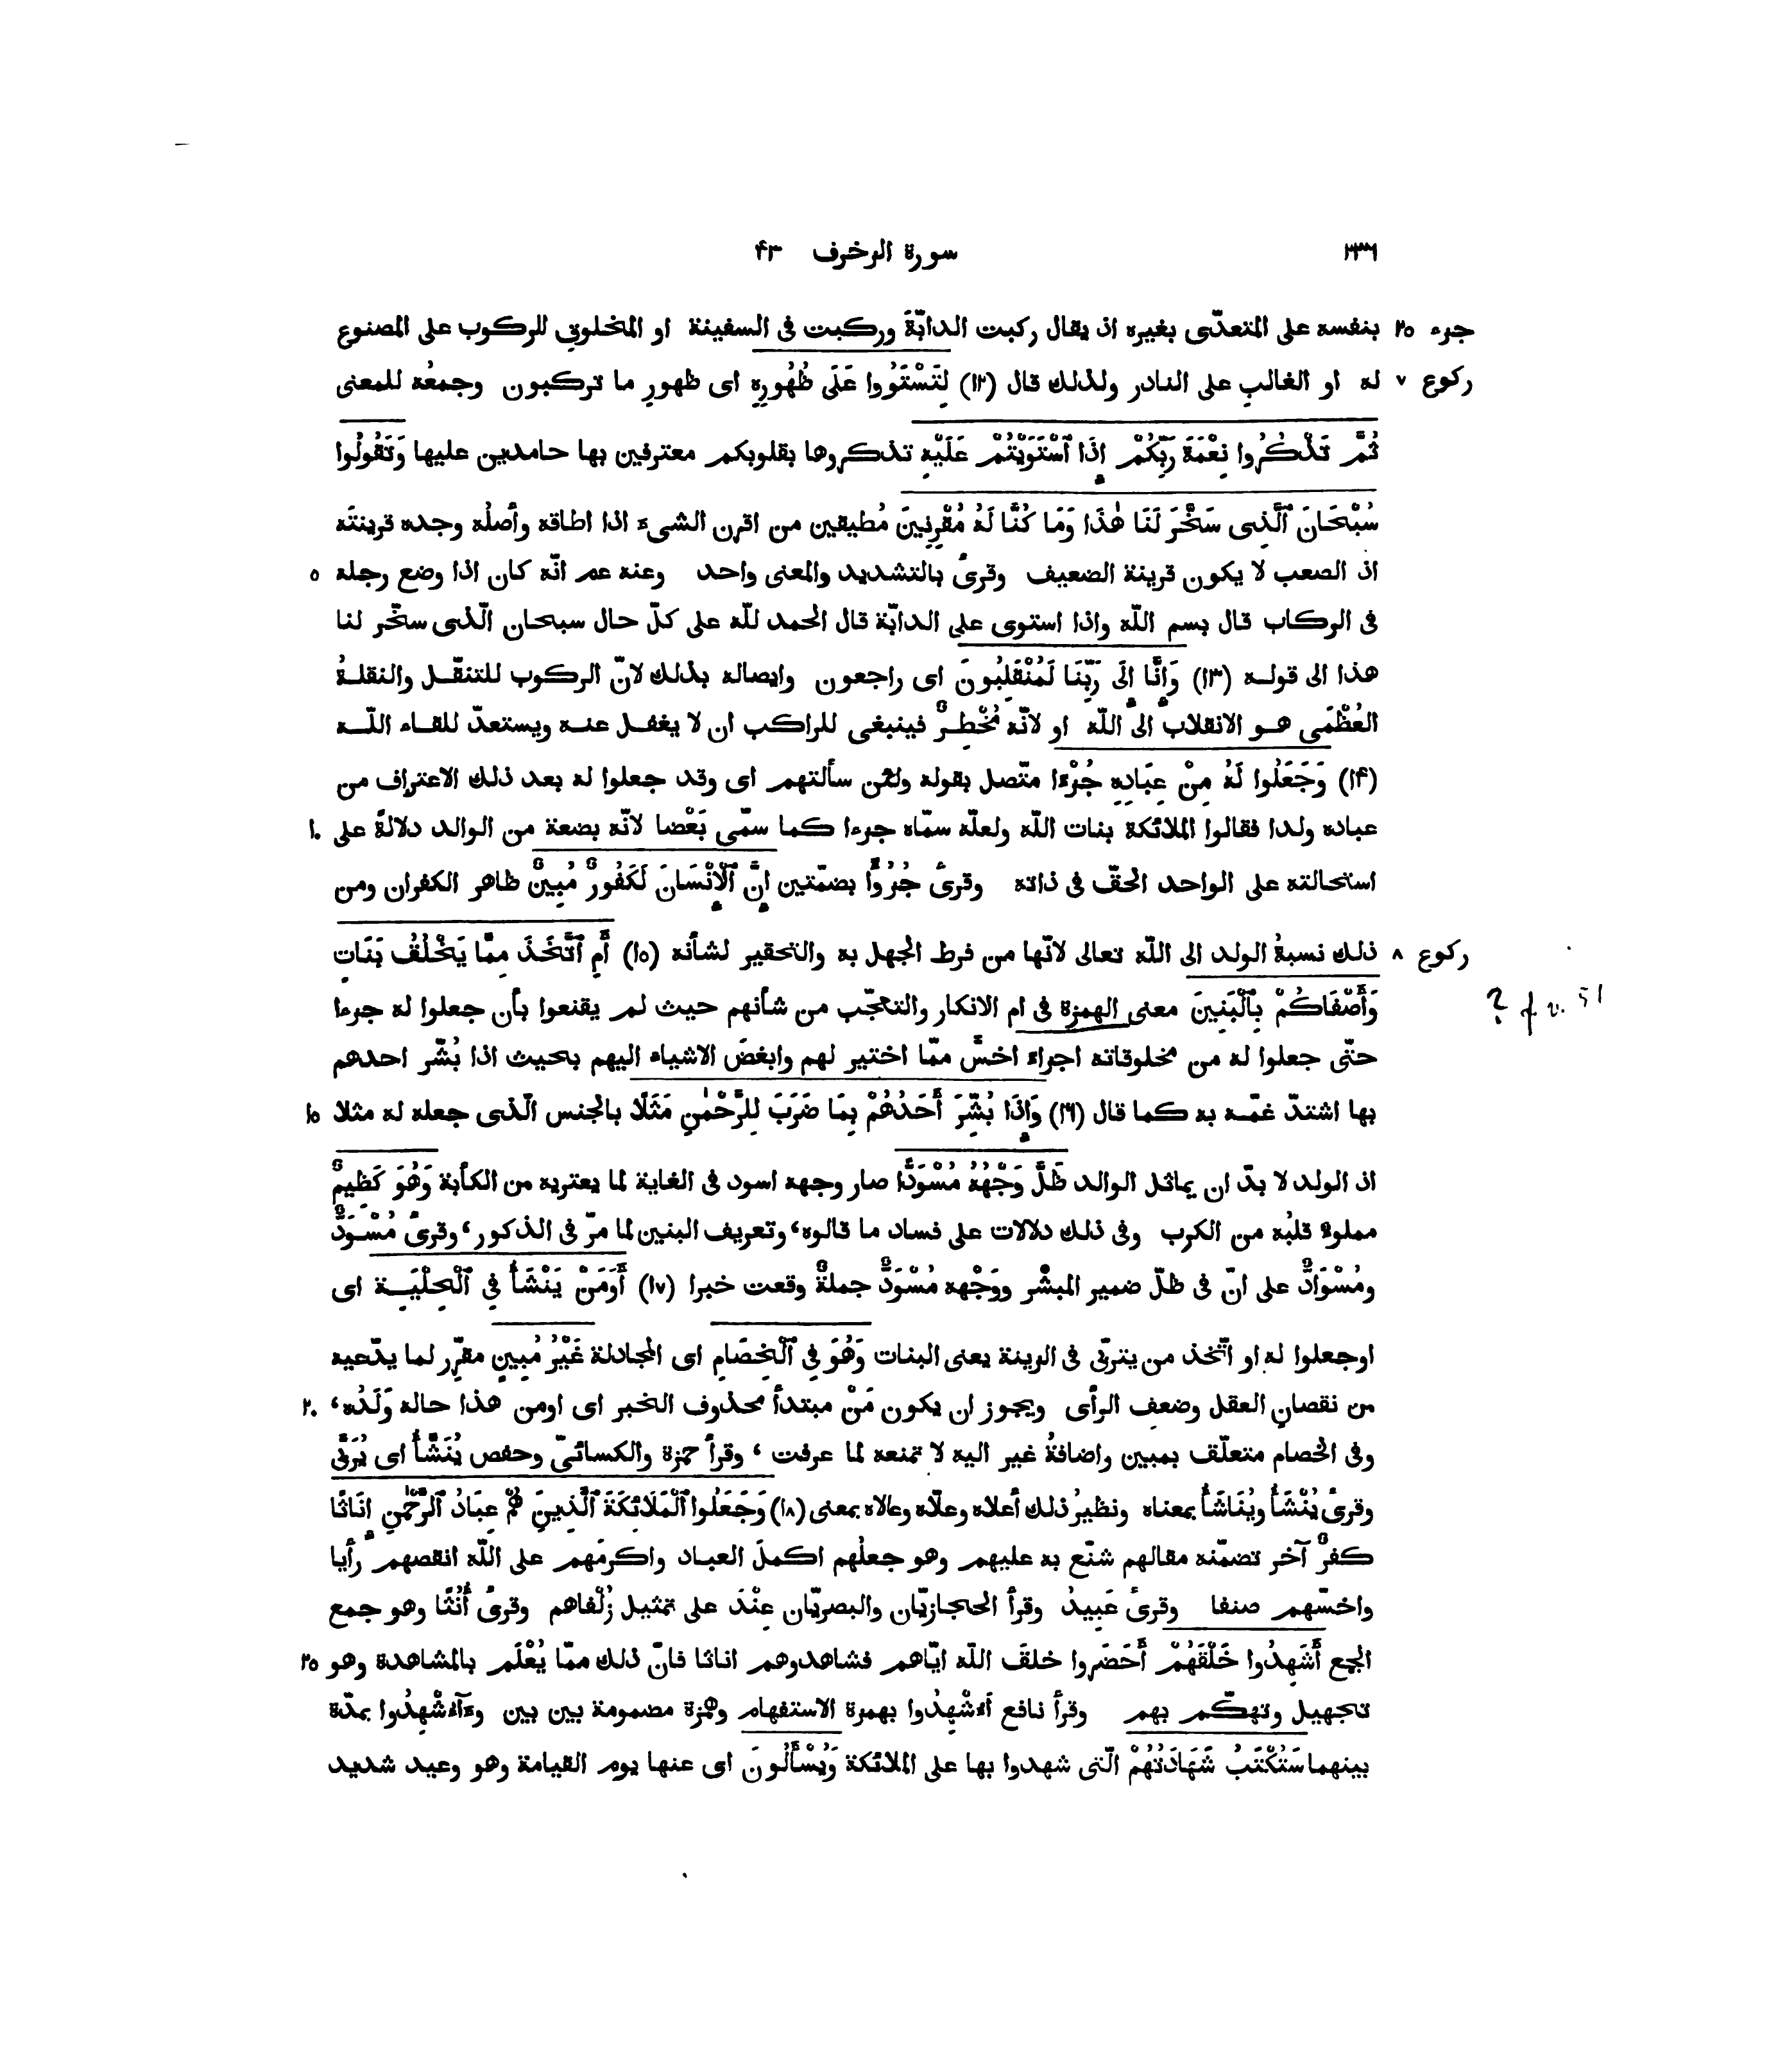 ٣٣٦ سورة الزخرف ۴٣
جزء ٢٥ بنفسه على المتعدّى بغيره اذ يقال ركبت الدابّةَ وركبت فى السفينة او المخلوقِ للركوب على المصنوع
ركوع ٧ له او الغالبِ على النادر ولذلك قال (١٢) لِتَسْتَوُوا عَلَى ظُهُورِهِ اى ظهورِ ما تركبون وجمعُه للمعنى
ثُمَّ تَذْكُرُوا نِعْمَةَ رَبِّكُمْ إِذَا ٱسْتَوَيْتُمْ عَلَيْهِ تذكروها بقلوبكم معترفين بها حامدين عليها وَتَقُولُوا
سُبْحَانَ ٱلَّذِى سَخَّرَ لَنَا هٰذَا وَمَا كُنَّا لَهُ مُقْرِنِينَ مُطيقين من اقرن الشىء اذا اطاقه وأصلُه وجده قرينتَه
اذ الصعب لا يكون قرينة الضعيف وقرئ بالتشديد والمعنى واحد وعنه عم انّه كان اذا وضع رجله ٥
فى الركاب قال بسم اللّه واذا استوى على الدابّة قال الحمد للّه على كلّ حال سبحان الّذى سخّر لنا
هذا الى قوله (١٣) وَإِنَّا إِلَى رَبِّنَا لَمُنْقَلِبُونَ اى راجعون وايصاله بذلك لانّ الركوب للتنقّل والنقلةُ
العُظْمَى هو الانقلاب الى اللّه او لانّه مُخْطِرٌ فينبغى للراكب ان لا يغفل عنه ويستعدّ للقاء اللّه
(١۴) وَجَعَلُوا لَهُ مِنْ عِبَادِهِ جُزْءًا متّصل بقوله ولئن سألتهم اى وقد جعلوا له بعد ذلك الاعتراف من
عباده ولدا فقالوا الملائكة بنات اللّه ولعلّه سمّاه جزءا كما سمّى بَعْضا لانّه بضعة من الوالد دلالةً على ١٠
استحالته على الواحد الحقّ فى ذاته وقرئ جُزُؤًا بضمّتين إِنَّ ٱلْإِنْسَانَ لَكَفُورٌ مُبِينٌ ظاهر الكفران ومن
ركوع ٨ ذلك نسبةُ الولد الى اللّه تعالى لانّها من فرط الجهل به والتحقير لشأنه (١٥) أَمِ ٱتَّخَذَ مِمَّا يَخْلُقُ بَنَاتٍ
وَأَصْفَاكُمْ بِٱلْبَنِينَ معنى الهمزة فى ام الانكار والتعجّب من شأنهم حيث لم يقنعوا بأن جعلوا له جزءا
? f v. 51
حتّى جعلوا له من مخلوقاته اجزاء اخسَّ ممّا اختير لهم وابغضَ الاشياء اليهم بحيث اذا بُشّر احدهم
بها اشتدّ غمّه به كما قال (١٦) وَإِذَا بُشِّرَ أَحَدُهُمْ بِمَا ضَرَبَ لِلرَّحْمٰنِ مَثَلًا بالجنس الّذى جعله له مثلا ١٥
اذ الولد لا بدّ ان يماثل الوالد ظَلَّ وَجْهُهُ مُسْوَدًّا صار وجهه اسود فى الغاية لما يعتريه من الكأبة وَهُوَ كَظِيمٌ
مملوء قلبُه من الكرب وفى ذلك دلالات على فساد ما قالوه، وتعريف البنين لما مرّ فى الذكور، وقرئ مُسْوَدٌّ
ومُسْوَادٌّ على انّ فى ظلّ ضمير المبشَّر ووَجْهه مُسْوَدٌّ جملةٌ وقعت خبرا (١٧) أَوَمَنْ يَنْشَأُ فِي ٱلْحِلْيَةِ اى
اوجعلوا له او اتّخذ من يتربّى فى الزينة يعنى البنات وَهُوَ فِي ٱلْخِصَامِ اى المجادلة غَيْرُ مُبِينٍ مقرّر لما يدّعيه
من نقصان العقل وضعف الرأى ويجوز ان يكون مَنْ مبتدأً محذوف الخبر اى اومن هذا حاله وَلَدُه، ٢٠
وفى الخصام متعلّق بمبين واضافةُ غير اليه لا تمنعه لما عرفت، وقرأ حمزة والكسائىّ وحفص يُنَشَّأُ اى يُرَبَّى
وقرئ يُنْشَأُ ويُنَاشَأُ بمعناه ونظيرُ ذلك أعلاه وعلّاه وعالاه بمعنى (١٨) وَجَعَلُوا ٱلْمَلَائِكَةَ ٱلَّذِينَ هُمْ عِبَادُ ٱلرَّحْمٰنِ إِنَاثًا
كفرٌ آخر تضمّنه مقالهم شنّع به عليهم وهو جعلُهم اكملَ العباد واكرمَهم على اللّه انقصهم رأيا
واخسّهم صنفا وقرئ عَبِيدُ وقرأ الحجازيّان والبصريّان عِنْدَ على تمثيل زُلْفاهم وقرئ أُنُثًا وهو جمع
الجمع أَشَهِدُوا خَلْقَهُمْ أَحَضَروا خلقَ اللّه ايّاهم فشاهدوهم اناثا فانّ ذلك ممّا يُعْلَم بالمشاهدة وهو ٢٥
تجهيل وتهكّم بهم وقرأ نافع أءُشْهِدُوا بهمزة الاستفهام وهمزة مضمومة بين بين وءَآءُشْهِدُوا بمدّة
بينهما سَتُكْتَبُ شَهَادَتُهُمْ الّتى شهدوا بها على الملائكة وَيُسْأَلُونَ اى عنها يوم القيامة وهو وعيد شديد